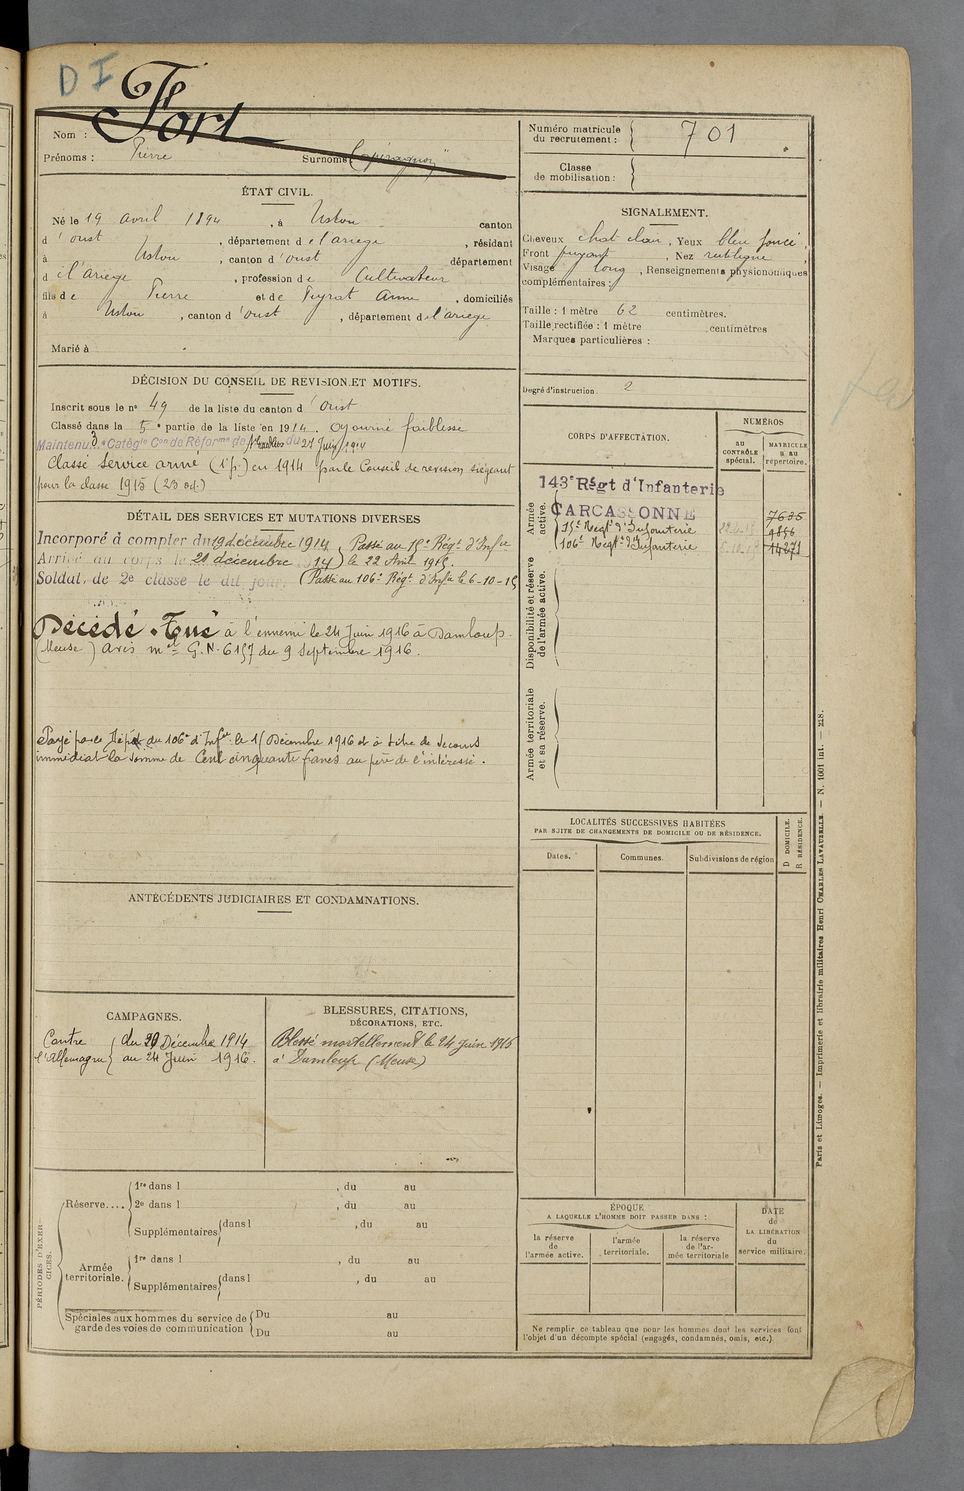 D I
Fort
Nom :
Prénoms : Pierre Surnoms
Numéro matricule du recrutement : 701
Classe de mobilisation :
ÉTAT CIVIL.
Né le 19 Avril 1894, à Ustou canton
d'oust, département de l'ariege, résidant
à Ustou, canton d'oust département
d el'Ariege, profession de Cultivateur
fils de Pierre et de Peyrat Anne, domiciliés
à Ustou, canton d'oust, département de l'ariege
Marié à
SIGNALEMENT.
Cheveux chat clair, Yeux bleu foncé,
Front fuyant, Nez rectiligne
Visage long, Renseignements physionomiques
complémentaires :
Taille : 1 mètre 62 centimètres.
Taille rectifiée : 1 mètre centimètres
Marques particulières :
Degré d'instruction. 2
DÉCISION DU CONSEIL DE REVISION ET MOTIFS.
Inscrit sous le n° 49 de la liste du canton d'Oust
Classé dans la 5e partie de la liste en 1914. Ajourné faiblesse
Maintenu 3e Catégie Con de Réforme de du 27 Juin 1914
Classé Service armé (1e p.) en 1914 par le Conseil de revision siégeant
pour la classe 1915 (23 oct.)
DÉTAIL DES SERVICES ET MUTATIONS DIVERSES
Incorporé à compter du 19 décembre 1914 Passé au 15e Régt d'Infie
Arrivé au corps le 20 décembre 1914) le 22 Avril 1915.
Soldat de 2e classe le dit jour. (Passé au 106e Régt d'Infie le 6-10-15
Décédé. Tué à l'ennemi le 24 Juin 1916 à Damloup.
(Meuse) avis mel G.N. 6157 du 9 Septembre 1916.
Payé par le Dépôt du 106e d'Infie le 15 Décembre 1916 et à titre de secours
immédiat la somme de Cent cinquante francs au père de l'intéressé.
CORPS D'AFFECTATION.
NUMÉROS
au CONTRÔLE spécial.
MATRICULE u au répertoire.
Armée active.
143e Régt d'Infanterie
CARCASSONNE 7635
15e Regt d'Infanterie 9856
106e Regt d'Infanterie 14271
Disponibilité et réserve de l'armée active.
Armée territoriale et sa réserve.
LOCALITÉS SUCCESSIVES HABITÉES
PAR SUITE DE CHANGEMENTS DE DOMICILE OU DE RÉSIDENCE.
Dates. Communes. Subdivisions de région
D DOMICILE.
R RÉSIDENCE.
ANTÉCÉDENTS JUDICIAIRES ET CONDAMNATIONS.
CAMPAGNES.
Contre du 20 Décembre 1914
l'Allemagne au 24 Juin 1916.
BLESSURES, CITATIONS,
DÉCORATIONS, ETC.
Blessé mortellement le 24 Juin 1916
à Damloup (Meuse)
PÉRIODES D'EXERCICES.
Réserve....
1re dans l , du au
2e dans l , du au
Supplémentaires dans l , du au
Armée territoriale.
1re dans l , du au
Supplémentaires dans l , du au
Spéciales aux hommes du service de Du au
garde des voies de communication Du au
ÉPOQUE
A LAQUELLE L'HOMME DOIT PASSER DANS :
la réserve de l'armée active.
l'armée territoriale.
la réserve de l'armée territoriale
DATE de LA LIBÉRATION du service militaire.
Ne remplir ce tableau que pour les hommes dont les services font
l'objet d'un décompte spécial (engagés, condamnés, omis, etc.).
Paris et Limoges. — Imprimerie et librairie militaires Henri CHARLES-LAVAUZELLE. — N. 1001 int. — 218.